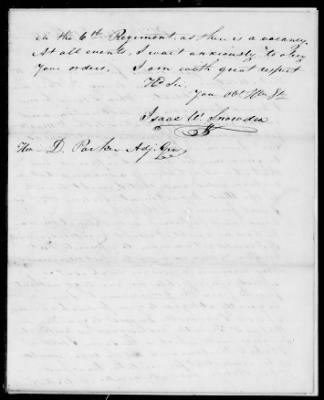 in the 6th Regiment as there is a vacancy.
At all events, I wait anxiously to obey
Your orders. I am with great respect
Hd Sir.
Your obt Hble St
Isaac W. Snowden
Hon D. Parker Adj. Gen